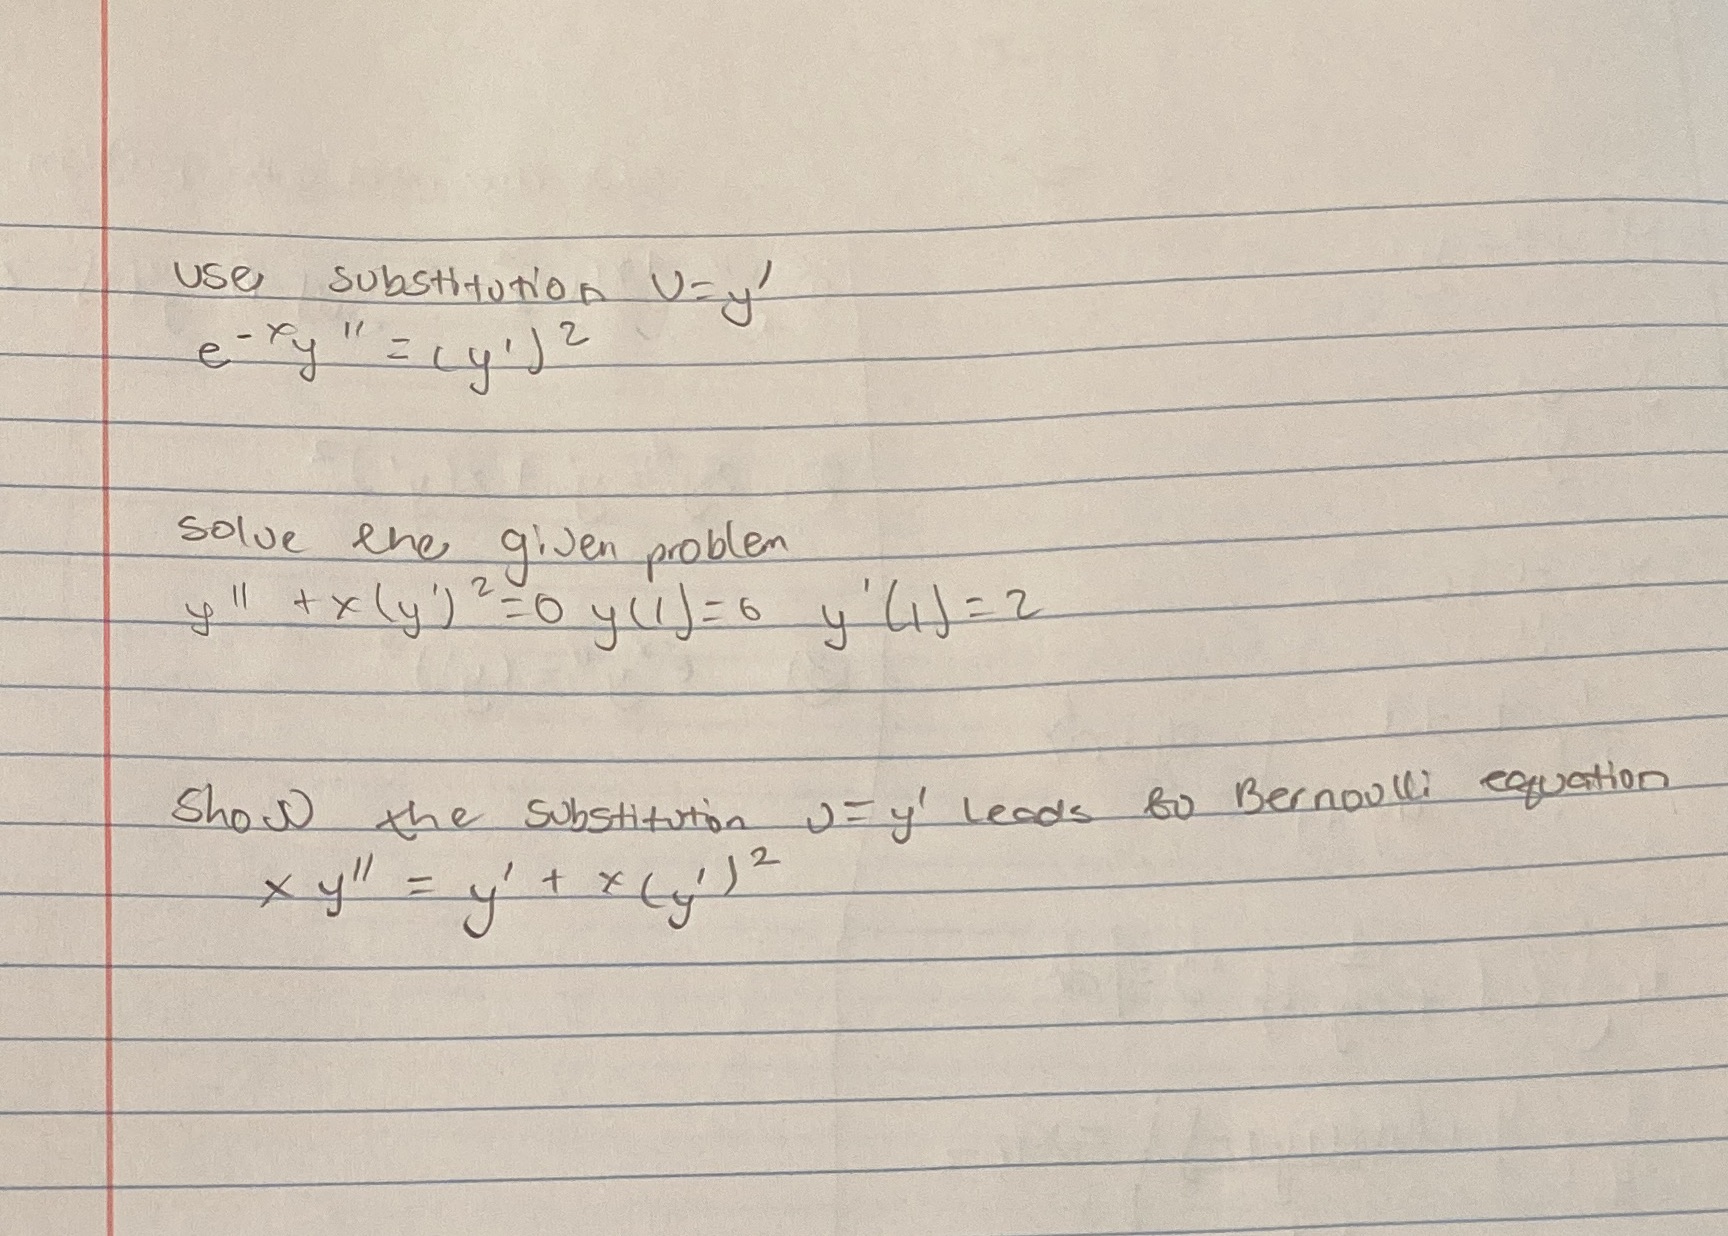 use substitution u=y'
e^-x y'' = (y')^2
solve the given problem
y'' + x(y')^2 = 0 y(1)=6 y'(1)=2
Show the substitution u=y' leads to Bernoulli equation
x y'' = y' + x(y')^2